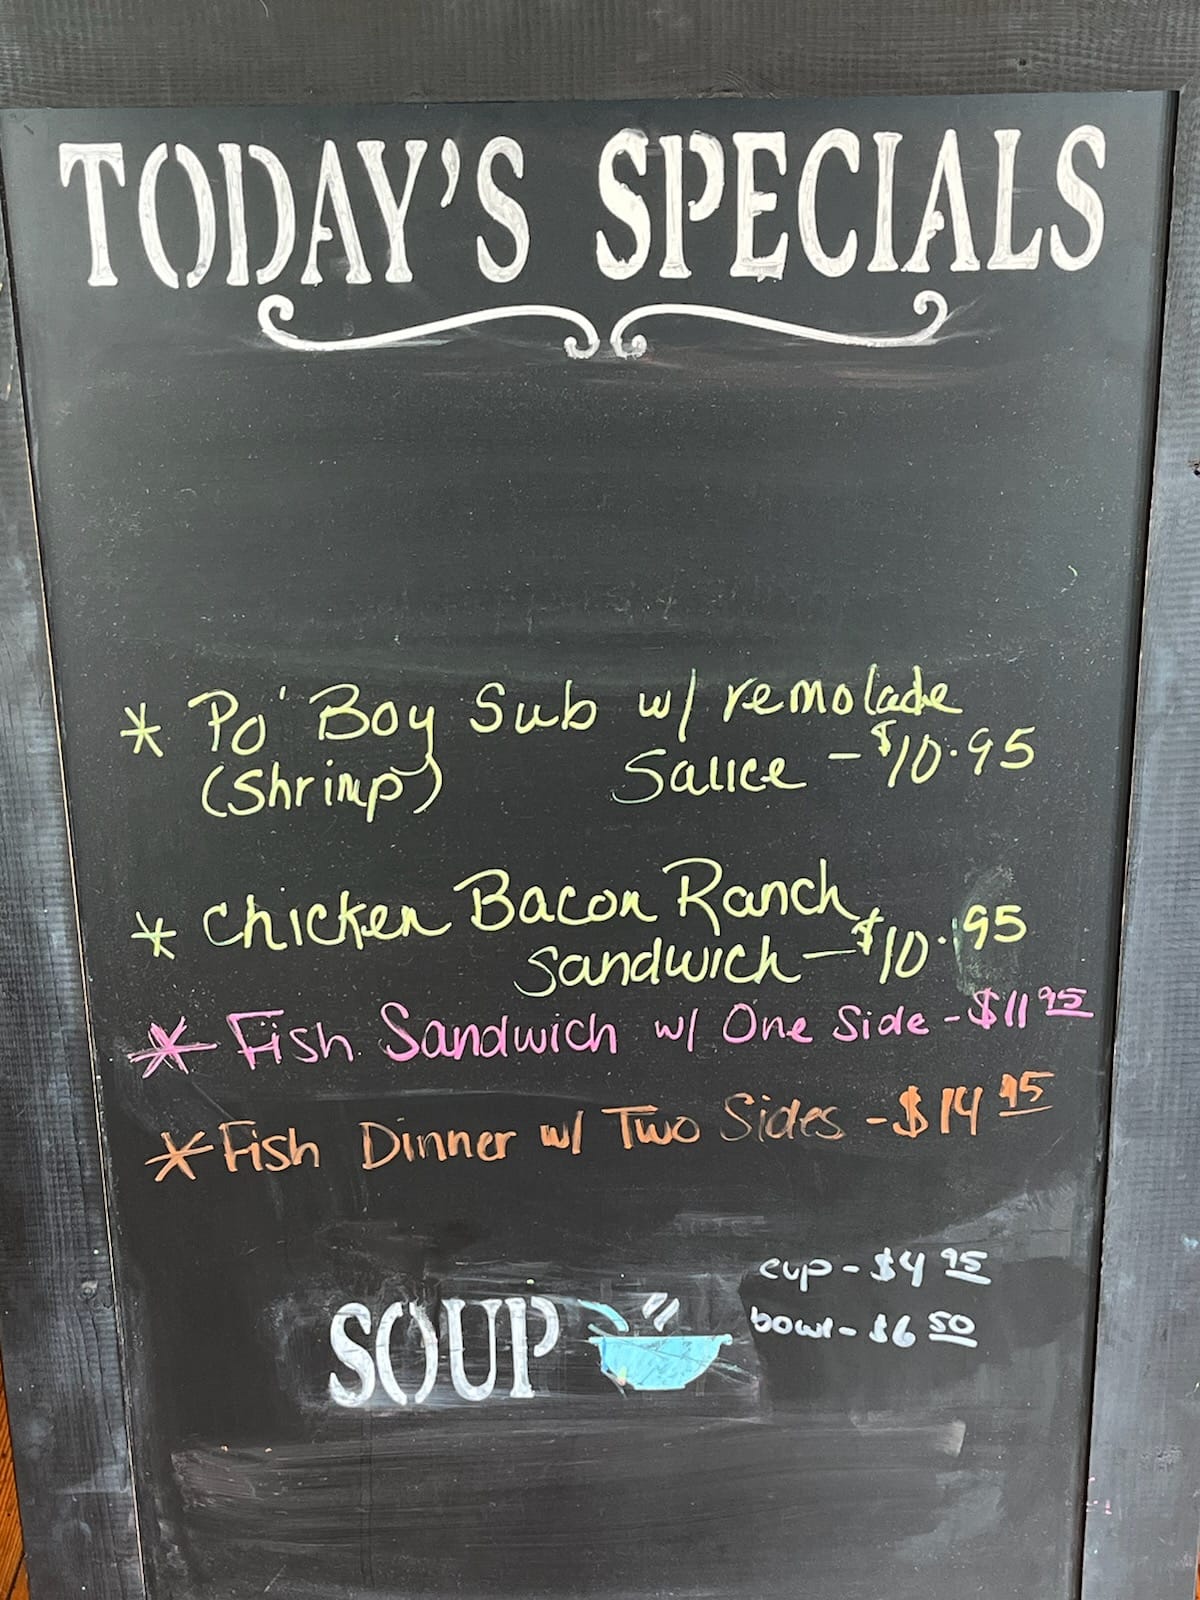 TODAY'S SPECIALS
* Po' Boy Sub w/ remolade
(Shrimp) Sauce - $10.95
* Chicken Bacon Ranch
Sandwich - $10.95
* Fish Sandwich w/ One Side - $11 95
* Fish Dinner w/ Two Sides - $14 95
cup - $4 95
SOUP bowl - $6 50